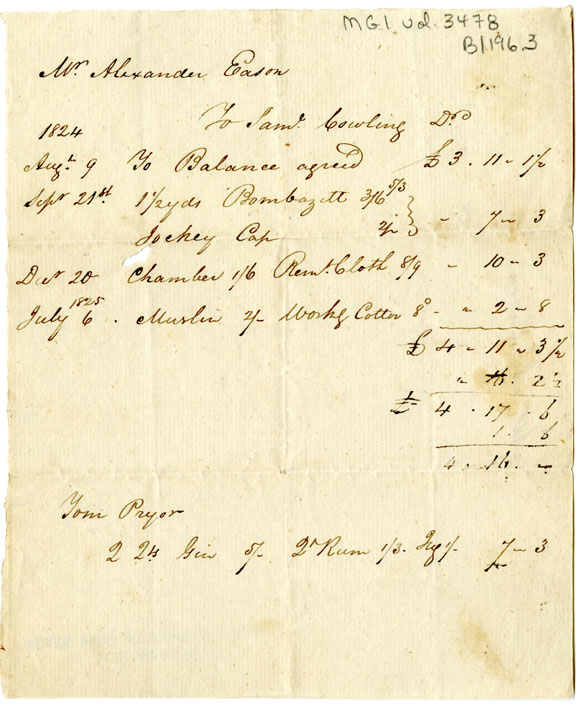 MG1 vol. 3478
B1196.3
Mr. Alexander Eason
To Saml. Cowling Dr.
1824
Augt. 9 To Balance agreed £3 . 11 - 1½
Sepr 21st. 1½ yds Bombazett 3/6 5/3
Jockey Cap 2/- } - 7 - 3
Decr 20 Chamber 1/6 Remt. Cloth 8/9 - 10 - 3
1825
July 6 . Muslin 2/- Workg Cotton 8d - - 2 - 8
£ 4 - 11 - 3½
2½
£ 4 . 17 . 6
1 . 6
4 . 16 . -
Tom Pryor
2 Gin 5/- Rum 1/3 1/- 7 - 3